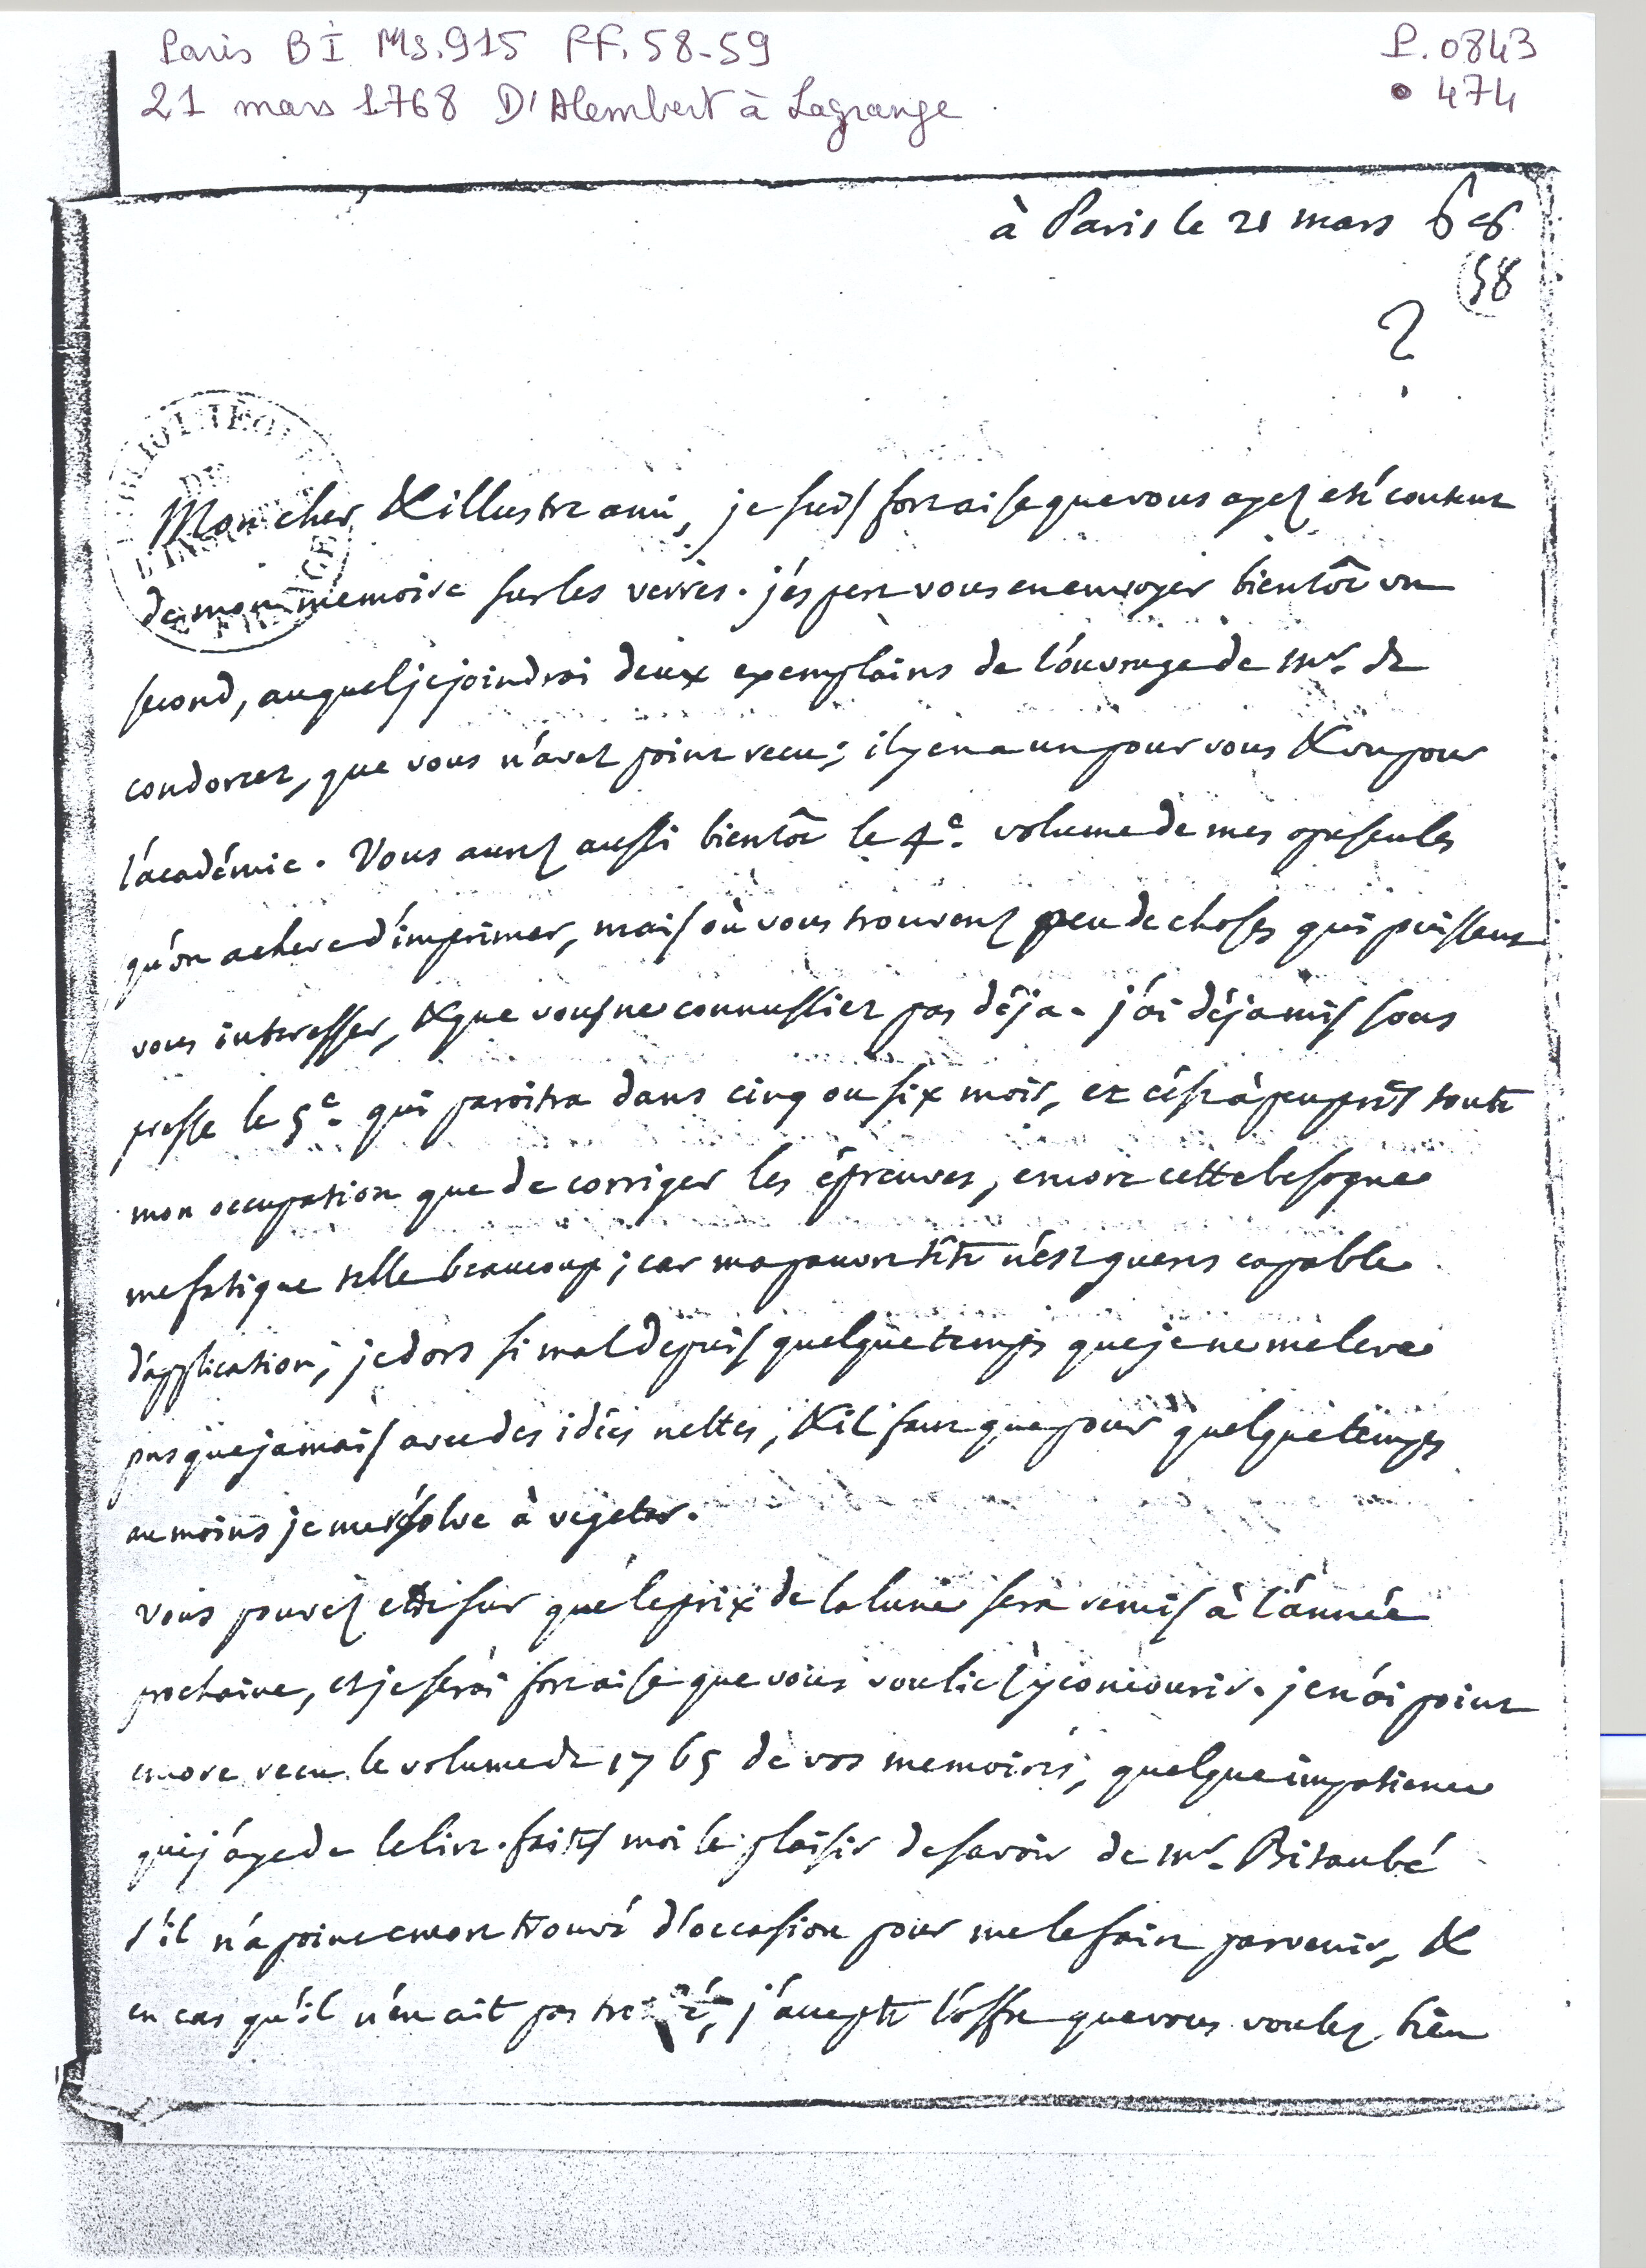 Paris BI Ms.915 FF.58-59
P.0843
21 mars 1768 D'Alembert à Lagrange
474
à Paris le 21 mars
58
?
BIBLIOTHÈQUE
DE
L'INSTITUT
DE FRANCE
Mon cher & illustre ami, je suis fort aise que vous ayez eté content
de mon memoire sur les verres. j'espere vous en envoyer bientôt un
second, auquel je joindrai deux exemplaires de l'ouvrage de mr. de
condorcet, que vous n'avez point recu; il y en a un pour vous & un pour
l'académie. Vous aurez aussi bientôt le 4e. volume de mes opuscules
qu'on acheve d'imprimer, mais où vous trouverez peu de choses qui puissent
vous interesser, & que vous ne connussiez pas déja. j'ai déja mis sous
presse le 5e. qui paroitra dans cinq ou six mois, et c'est à peu près toute
mon occupation que de corriger les épreuves, encore cette besogne
me fatigue telle beaucoup; car ma pauvre tête n'est gueres capable
d'application; je dors si mal depuis quelque temps que je ne me leve
presque jamais avec des idées nettes, & il faut que pour quelque temps
au moins je me résolve à vegeter.
vous pouvez etre sur que le prix de la lune sera remis à l'année
prochaine, et je serai fort aise que vous vouliez y concourir. je n'ai point
encore recu le volume de 1765 de vos memoires, quelque impatience
que j'aye de le lire. faites moi le plaisir de savoir de mr. Bitaubé
s'il n'a point encore trouvé d'occasion pour me le faire parvenir, &
en cas qu'il n'en ait pas trouvé, j'accepte l'offre que vous voulez bien